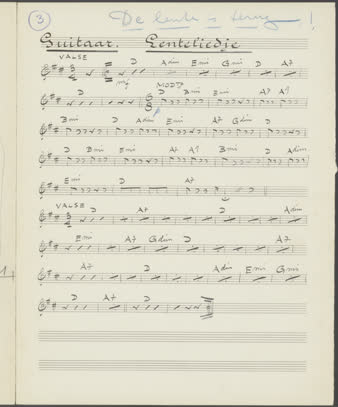 3 De lente is terug!
Guitaar. Lenteliedje
VALSE D Adim Emi Gmi D A7
mf
D MODT? D Bmi Emi A7
Bmi D Adim Emi A7 Gdim D
D Bmi Emi A7 A7 Bmi D
Emi D A7
VALSE D A7 D Adim
Emi A7 Gdim D A7 D
A7 D Adim Emi Gmi
D A7 D